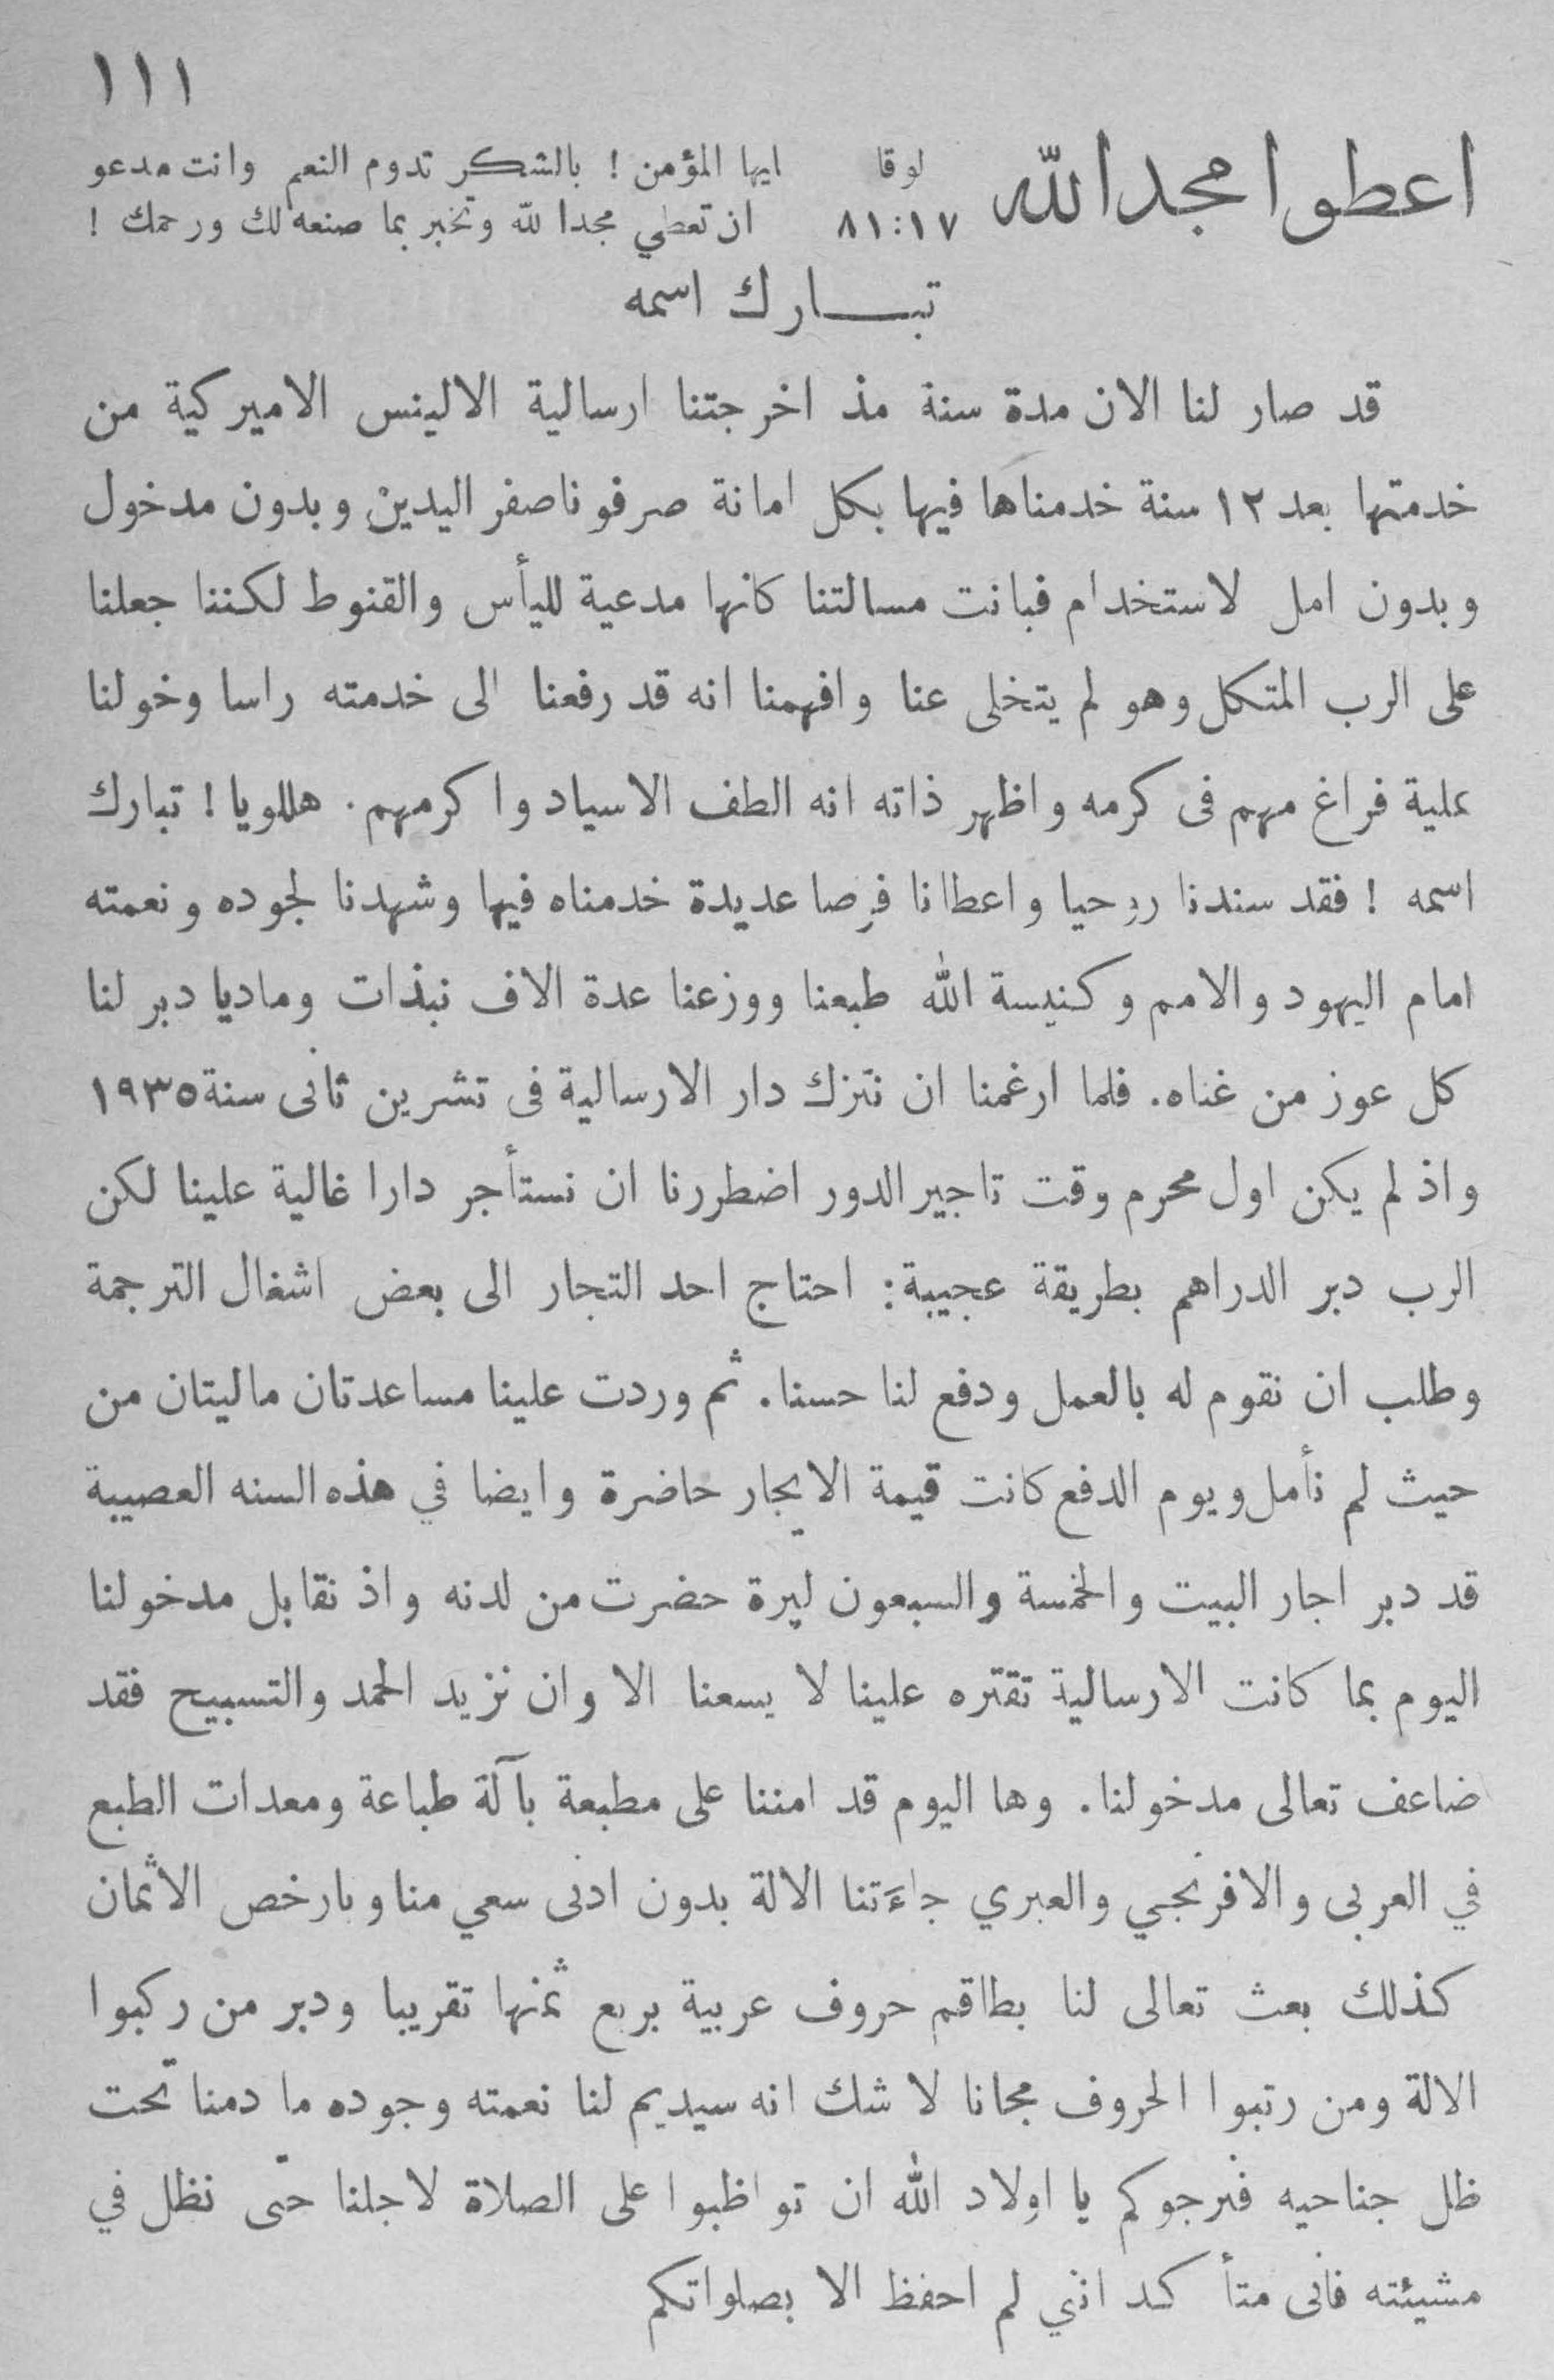 ١١١
اعطوا مجدا لله لوقا ايها المؤمن ! بالشكر تدوم النعم وانت مدعو
٨١:١٧ ان تعطي مجدا لله وتخبر بما صنعه لك ورحمك !
تبارك اسمه
قد صار لنا الان مدة سنة مذ اخرجتنا ارسالية الالينس الاميركية من
خدمتها بعد ١٢ سنة خدمناها فيها بكل امانة صرفونا صفر اليدين وبدون مدخول
وبدون امل لاستخدام فبانت مسالتنا كانها مدعية لليأس والقنوط لكننا جعلنا
على الرب المتكل وهو لم يتخلى عنا وافهمنا انه قد رفعنا الى خدمته راسا وخولنا
علية فراغ مهم فى كرمه واظهر ذاته انه الطف الاسياد واكرمهم. هللويا ! تبارك
اسمه ! فقد سندنا روحيا واعطانا فرصا عديدة خدمناه فيها وشهدنا لجوده ونعمته
امام اليهود والامم وكنيسة الله طبعنا ووزعنا عدة الاف نبذات وماديا دبر لنا
كل عوز من غناه. فلما ارغمنا ان نترك دار الارسالية فى تشرين ثانى سنة ١٩٣٥
واذ لم يكن اول محرم وقت تاجير الدور اضطررنا ان نستأجر دارا غالية علينا لكن
الرب دبر الدراهم بطريقة عجيبة: احتاج احد التجار الى بعض اشغال الترجمة
وطلب ان نقوم له بالعمل ودفع لنا حسنا. ثم وردت علينا مساعدتان ماليتان من
حيث لم نأمل ويوم الدفع كانت قيمة الايجار حاضرة وايضا في هذه السنه العصيبة
قد دبر اجار البيت والخمسة والسبعون ليرة حضرت من لدنه واذ نقابل مدخولنا
اليوم بما كانت الارسالية تقتره علينا لا يسعنا الا وان نزيد الحمد والتسبيح فقد
ضاعف تعالى مدخولنا. وها اليوم قد امننا على مطبعة بآلة طباعة ومعدات الطبع
في العربى والافرنجي والعبري جاءَتنا الالة بدون ادنى سعي منا وبارخص الاثمان
كذلك بعث تعالى لنا بطاقم حروف عربية بربع ثمنها تقريبا ودبر من ركبوا
الالة ومن رتبوا الحروف مجانا لا شك انه سيديم لنا نعمته وجوده ما دمنا تحت
ظل جناحيه فنرجوكم يا اولاد الله ان تواظبوا على الصلاة لاجلنا حتى نظل في
مشيئته فانى متأكد انني لم احفظ الا بصلواتكم